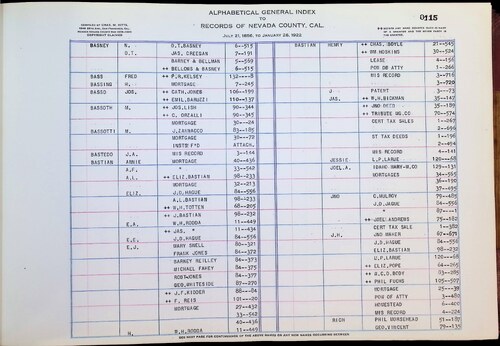 ALPHABETICAL GENERAL INDEX
TO
RECORDS OF NEVADA COUNTY, CAL.
JULY 21, 1856, TO JANUARY 28, 1922
0115
BASNEY N. D.T.BASNEY 6--515
D.T. JAS. CREEGAN 7--191
BARNEY & BELLMAN 5--569
++ BELLOWS & BASNEY 6--515
BASS FRED ++ F.H.KELSEY 132----8
BASSING H. MORTGAGE 7--245
BASSO JOS. ++ CATH.JONES 106--199
++ EMIL.BARUZZI 110--137
BASSOTH M. ++ JOS.LISH 90--344
++ C. GREALLI 90--345
MORTGAGE 30--264
BASSOTTI M. J.ZANNACCO 83--185
MORTGAGE 30--72
INSTR F'D ATTACH.
BASTEDO J.A. MIS RECORD 3--144
BASTIAN ANNIE MORTGAGE 40--436
A.F. 33--562
A.L. ++ ELIZ.BASTIAN 98--233
MORTGAGE 32--213
ELIZ. J.D.HAGUE 84--556
A.L.BASTIAN 98--233
++ W.H.TOTTEN 48--205
++ J.BASTIAN 98--232
E.A. W.H.RODDA 11--449
++ JAS. " 11--434
E.E. J.D.HAGUE 84--556
E.J. MARY SNELL 80--321
FRANK JONES 84--372
BARNEY REILLEY 84--373
MICHAEL FAHEY 84--375
ROBT.JONES 84--377
GEO.WHITESIDE 87--270
++ J.F.KIDDER 88--84
++ F. REIS 101---20
MORTGAGE 27--432
33--562
40--436
H. W.H.RODDA 11--449
BASTIAN HENRY ++ CHAS. BOYLE 21--545
++ WM HOSKING 39--524
LEASE 4--156
POW OF ATTY 1--266
MIS RECORD 3--716
3--720
J PATENT 3--73
JAS. ++ W.H.BICKMAN 35--147
++ JNO REED 35--189
++ TRIBUTE MG.CO 70--574
CERT TAX SALES 1--267
2--699
ST TAX DEEDS 1--196
2--494
MIS RECORD 4--141
JESSIE L.P.LARUE 120---68
JOEL.A. IDAHO MARY-M.CO 129--131
MORTGAGES 34--595
36--150
37--495
JNO C.MULROY 79--485
J.D.HAGUE 84--556
" 87----1
++ JOEL ANDREWS 75--182
CERT TAX SAL 1--382
J.H. JNO BAKER 67--671
J.D.HAGUE 84--556
ELIZ.BASTIAN 98--232
L.P.LARUE 120---68
++ ELIZ.POPE 64--556
++ B.C.D.BODY 83--285
++ PHIL FUCHS 105--507
MORTGAGE 25---39
POW OF ATTY 3--488
HOMESTEAD 6--400
MIS RECORD 4--224
RICH PHIL MORSEHEAD 51--187
GEO.VINCENT 79--135